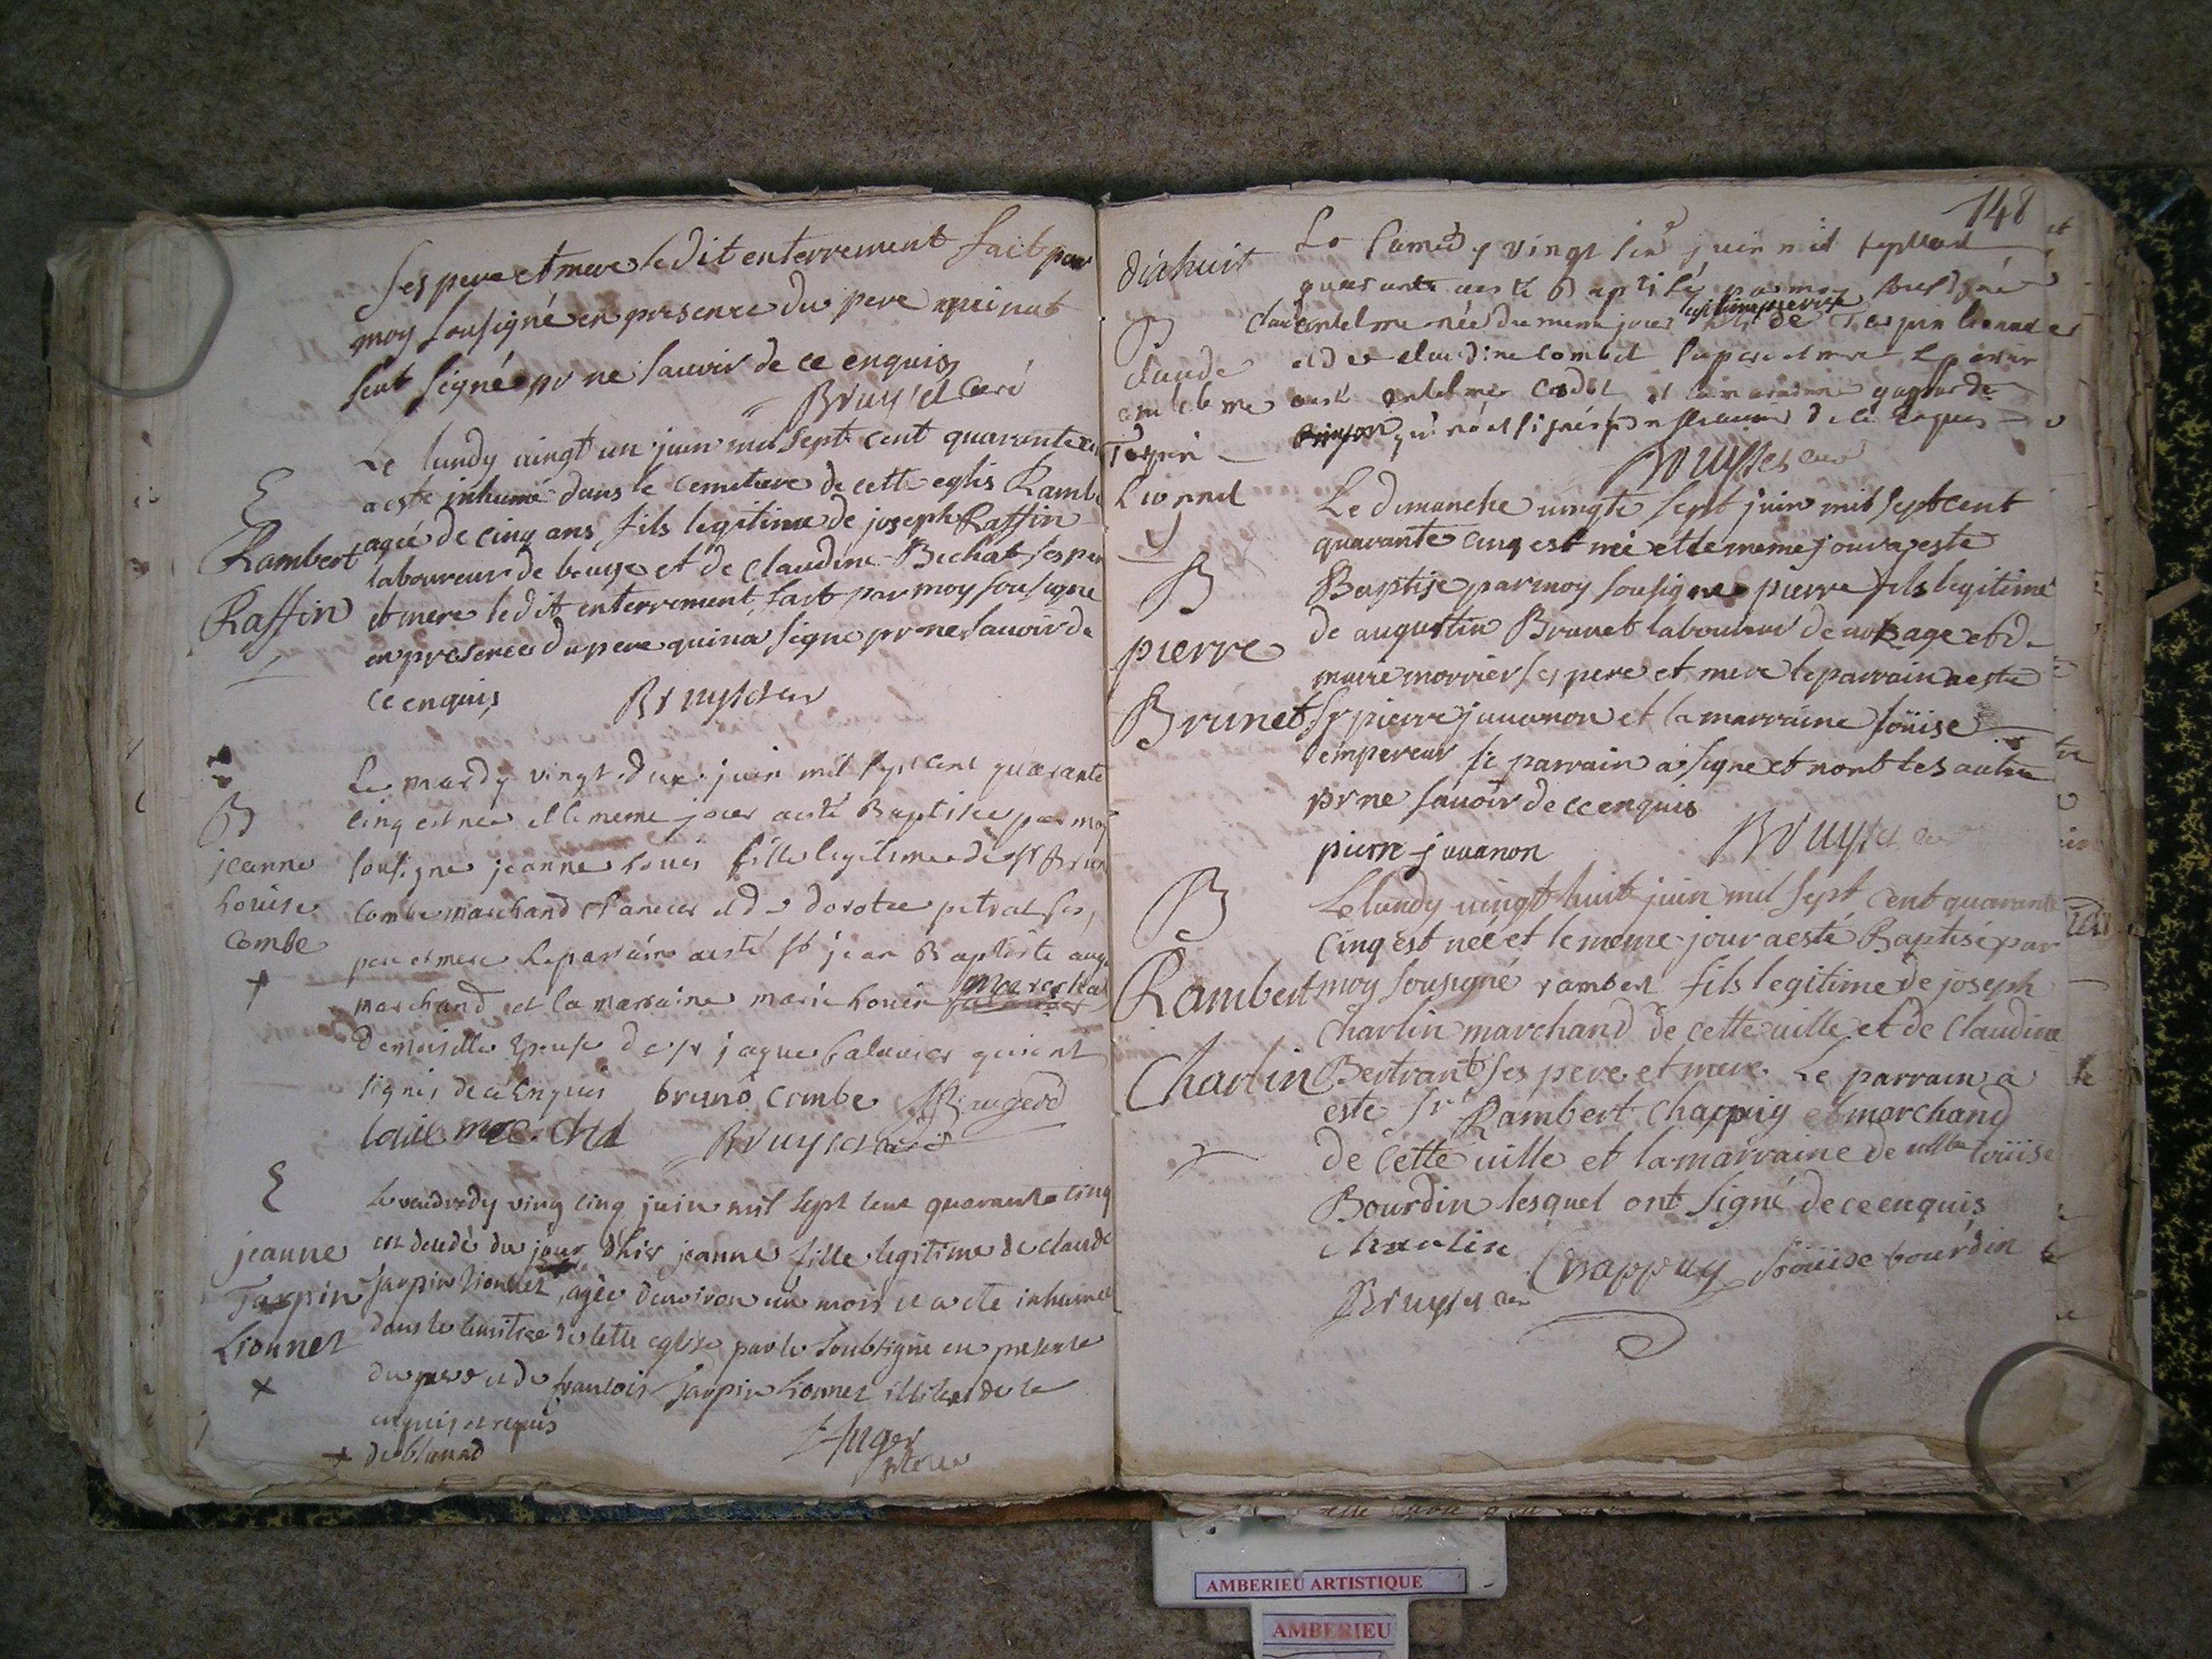 ses pere et mere le dit enterrement fait par
moy sousigné en presence du pere qui n'at
seut signé pr ne sauoir de ce enquis
Bruyset curé
E
Rambert
Raffin
Le lundy uingt un juin mil sept cent quarante
a este inhumé dans le cemitiere de cette eglis Rambe
agée de cinq ans fils legitime de joseph Raffin
laboureur de et de claudine Bechat ses per
et mere le dit enterrement fait par moy sousigne
en presence du pere qui na signe pr ne sauoir de
ce enquis Bruyset cur
B
jeanne
Louise
Combe
+
Le mardy vingt deux juin mil sept cent quarante
cinq est née et le meme jour a esté Baptisée par moy
sousigne jeanne Louis fille legitime de sr Brun
Combe marchand et de dorotee ses
pere et mere le parrain a esté sr jean Baptiste auge
marchand et la marraine marie Louise marechal
demoiselle Epouse de sr jaque qui ont
signés de ce Enquis bruno combe JB augerd
Louise
Bruyset curé
E
jeanne
Tarpin
Lionnet
x
Le vendredy ving cinq juin mil sept cent quarante cinq
est decedé du jour dhier jeanne fille legitime de claude
Tarpin Lionnet, agée d'environ un mois et a été inhumée
dans le cemitiere de cette eglise par le soubsigné en presence
du pere et de francois Tarpin Lionnet illiteré de ce
enquis et requis
+ de blanad
Auger
vicaire
148
dixhuit
B
Claude
antelme
Tarpin
Lionnet
Le samedy vingt six juin mil sept cent
quarante a esté Baptisé par moy sousigné
claude antelme née du meme jour fils legitime de pierre Tarpin Lionnet
et de claudine Combet ses pere et mere le parrain
a esté antelme Cadet et la maraine
qui n'ont signés pr ne sauoir de ce Enquis
Bruyset cur
B
pierre
Brunet
Le dimanche uingte sept juin mil sept cent
quarante cinq est née et le meme jour a este
Baptise par moy sousigne pierre fils legitime
de augustin Brunet laboureur de et de
marie morrier ses pere et mere le parrain a este
sr pierre juuanon et la marraine Loüise
empereur le parrain a signe et nont les autre
pr ne sauoir de ce enquis
pierre juuanon Bruyset cur
B
Rambert
Charlin
Le lundy uingt huit juin mil sept cent quarante
cinq est née et le meme jour a esté Baptisé par
moy sousigné rambert fils legitime de joseph
Charlin marchand de cette uille et de Claudine
Bertrant ses pere et mere. Le parrain a
este sr Rambert Chappuy marchand
de cette uille et la marraine demlle Loüise
Bourdin lesquel ont signé de ce enquis
Charlin Chappuy Loüise bourdin
Bruyset cur
AMBERIEU ARTISTIQUE
AMBERIEU